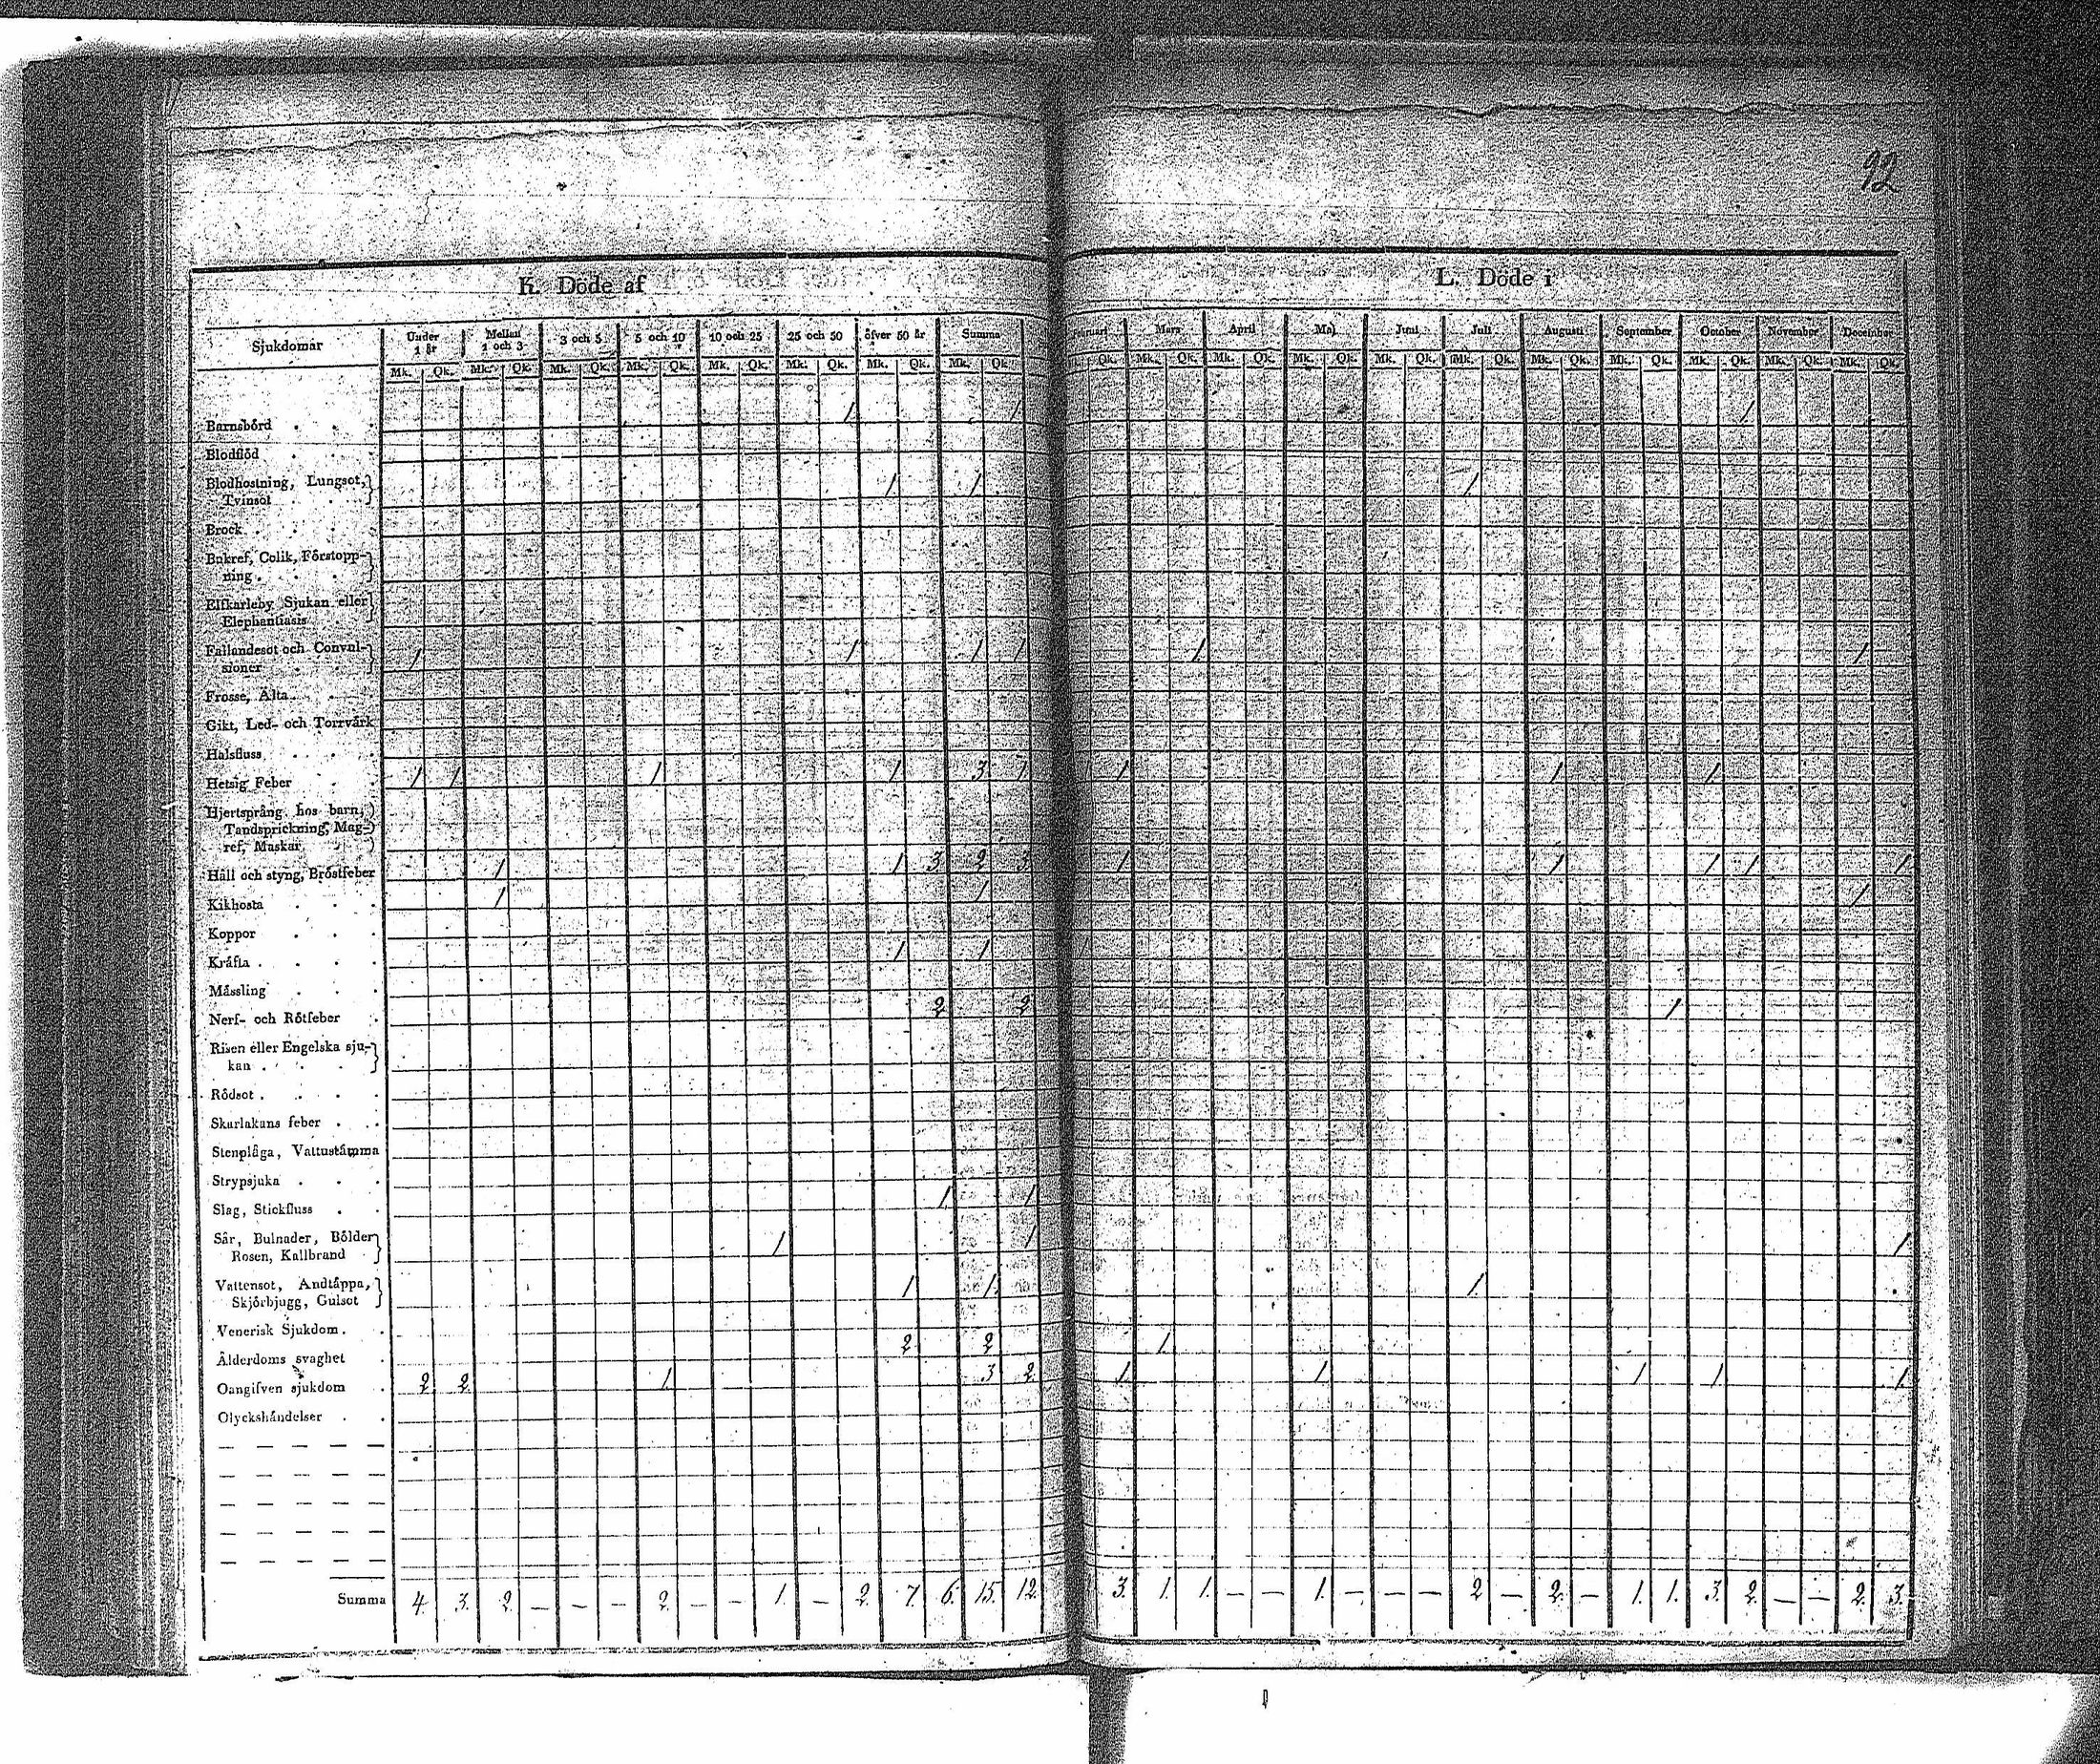 92
K. Döde af
L. Döde i
Sjukdomar Under 1 år Mellan 1 och 3 3 och 5 5 och 10 10 och 25 25 och 50 öfver 50 år Summa
Februari Mars April Maj Juni Juli Augusti September October November December
Mk. Qk. Mk. Qk. Mk. Qk. Mk. Qk. Mk. Qk. Mk. Qk. Mk. Qk. Mk. Qk.
Qk. Mk. Qk. Mk. Qk. Mk. Qk. Mk. Qk. Mk. Qk. Mk. Qk. Mk. Qk. Mk. Qk. Mk. Qk. Mk. Qk.
Barnsbörd 1 1 1
Blodflöd
Blodhostning, Lungsot,
Tvinsot 1 1 1
Brock
Bukref, Colik, Förstopp-
ning
Elfkarleby Sjukan eller
Elephantiasis
Fallandesot och Convul-
sioner 1 1 1 1 1 1
Frosse, Älta
Gikt, Led- och Torrvärk
Halsfluss
Hetsig Feber 1 1 1 1 3 1 1 1 1 1
Hjertsprång hos barn,
Tandsprickning, Mag-
ref, Maskar
Håll och styng, Bröstfeber 1 1 3 2 3 1 1 1 1 1
Kikhosta 1 1 1
Koppor
Kräfta 1 1 1
Mässling
Nerf- och Rötfeber 2 2 1
Risen eller Engelska sju-
kan
Rödsot
Skarlakans feber
Stenplåga, Vattustämma
Strypsjuka
Slag, Stickfluss 1 1
Sår, Bulnader, Bölder
Rosen, Kallbrand 1 1 1
Vattensot, Andtäppa,
Skjörbjugg, Gulsot 1 1 1
Venerisk Sjukdom
Ålderdoms svaghet 2 2 1
Oangifven sjukdom 2 2 1 3 2 1 1 1 1 1
Olyckshändelser
Summa 4. 3. 2 — — — 2 — — 1. — 2. 7. 6. 15. 12. 3. 1. 1. — — 1. — — — 2 — 2. — 1. 1. 3. 2. — — 2. 3.